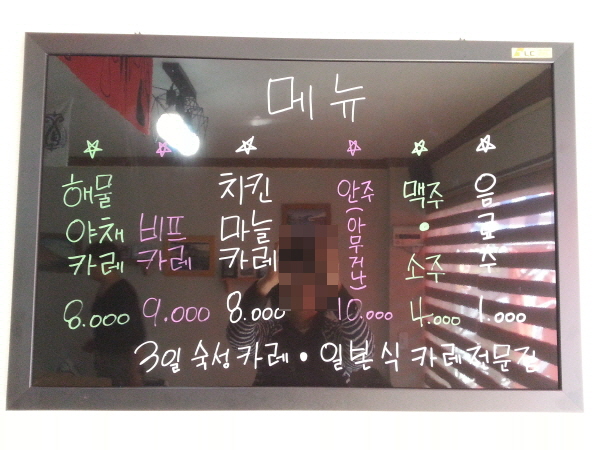 메뉴
해물
야채
카레
8.000
비프
카레
9.000
치킨
마늘
카레
8.000
안주(아무거나)
10.000
맥주
•
소주
4.000
음료수
1.000
3일 숙성 카레 • 일본식 카레전문점